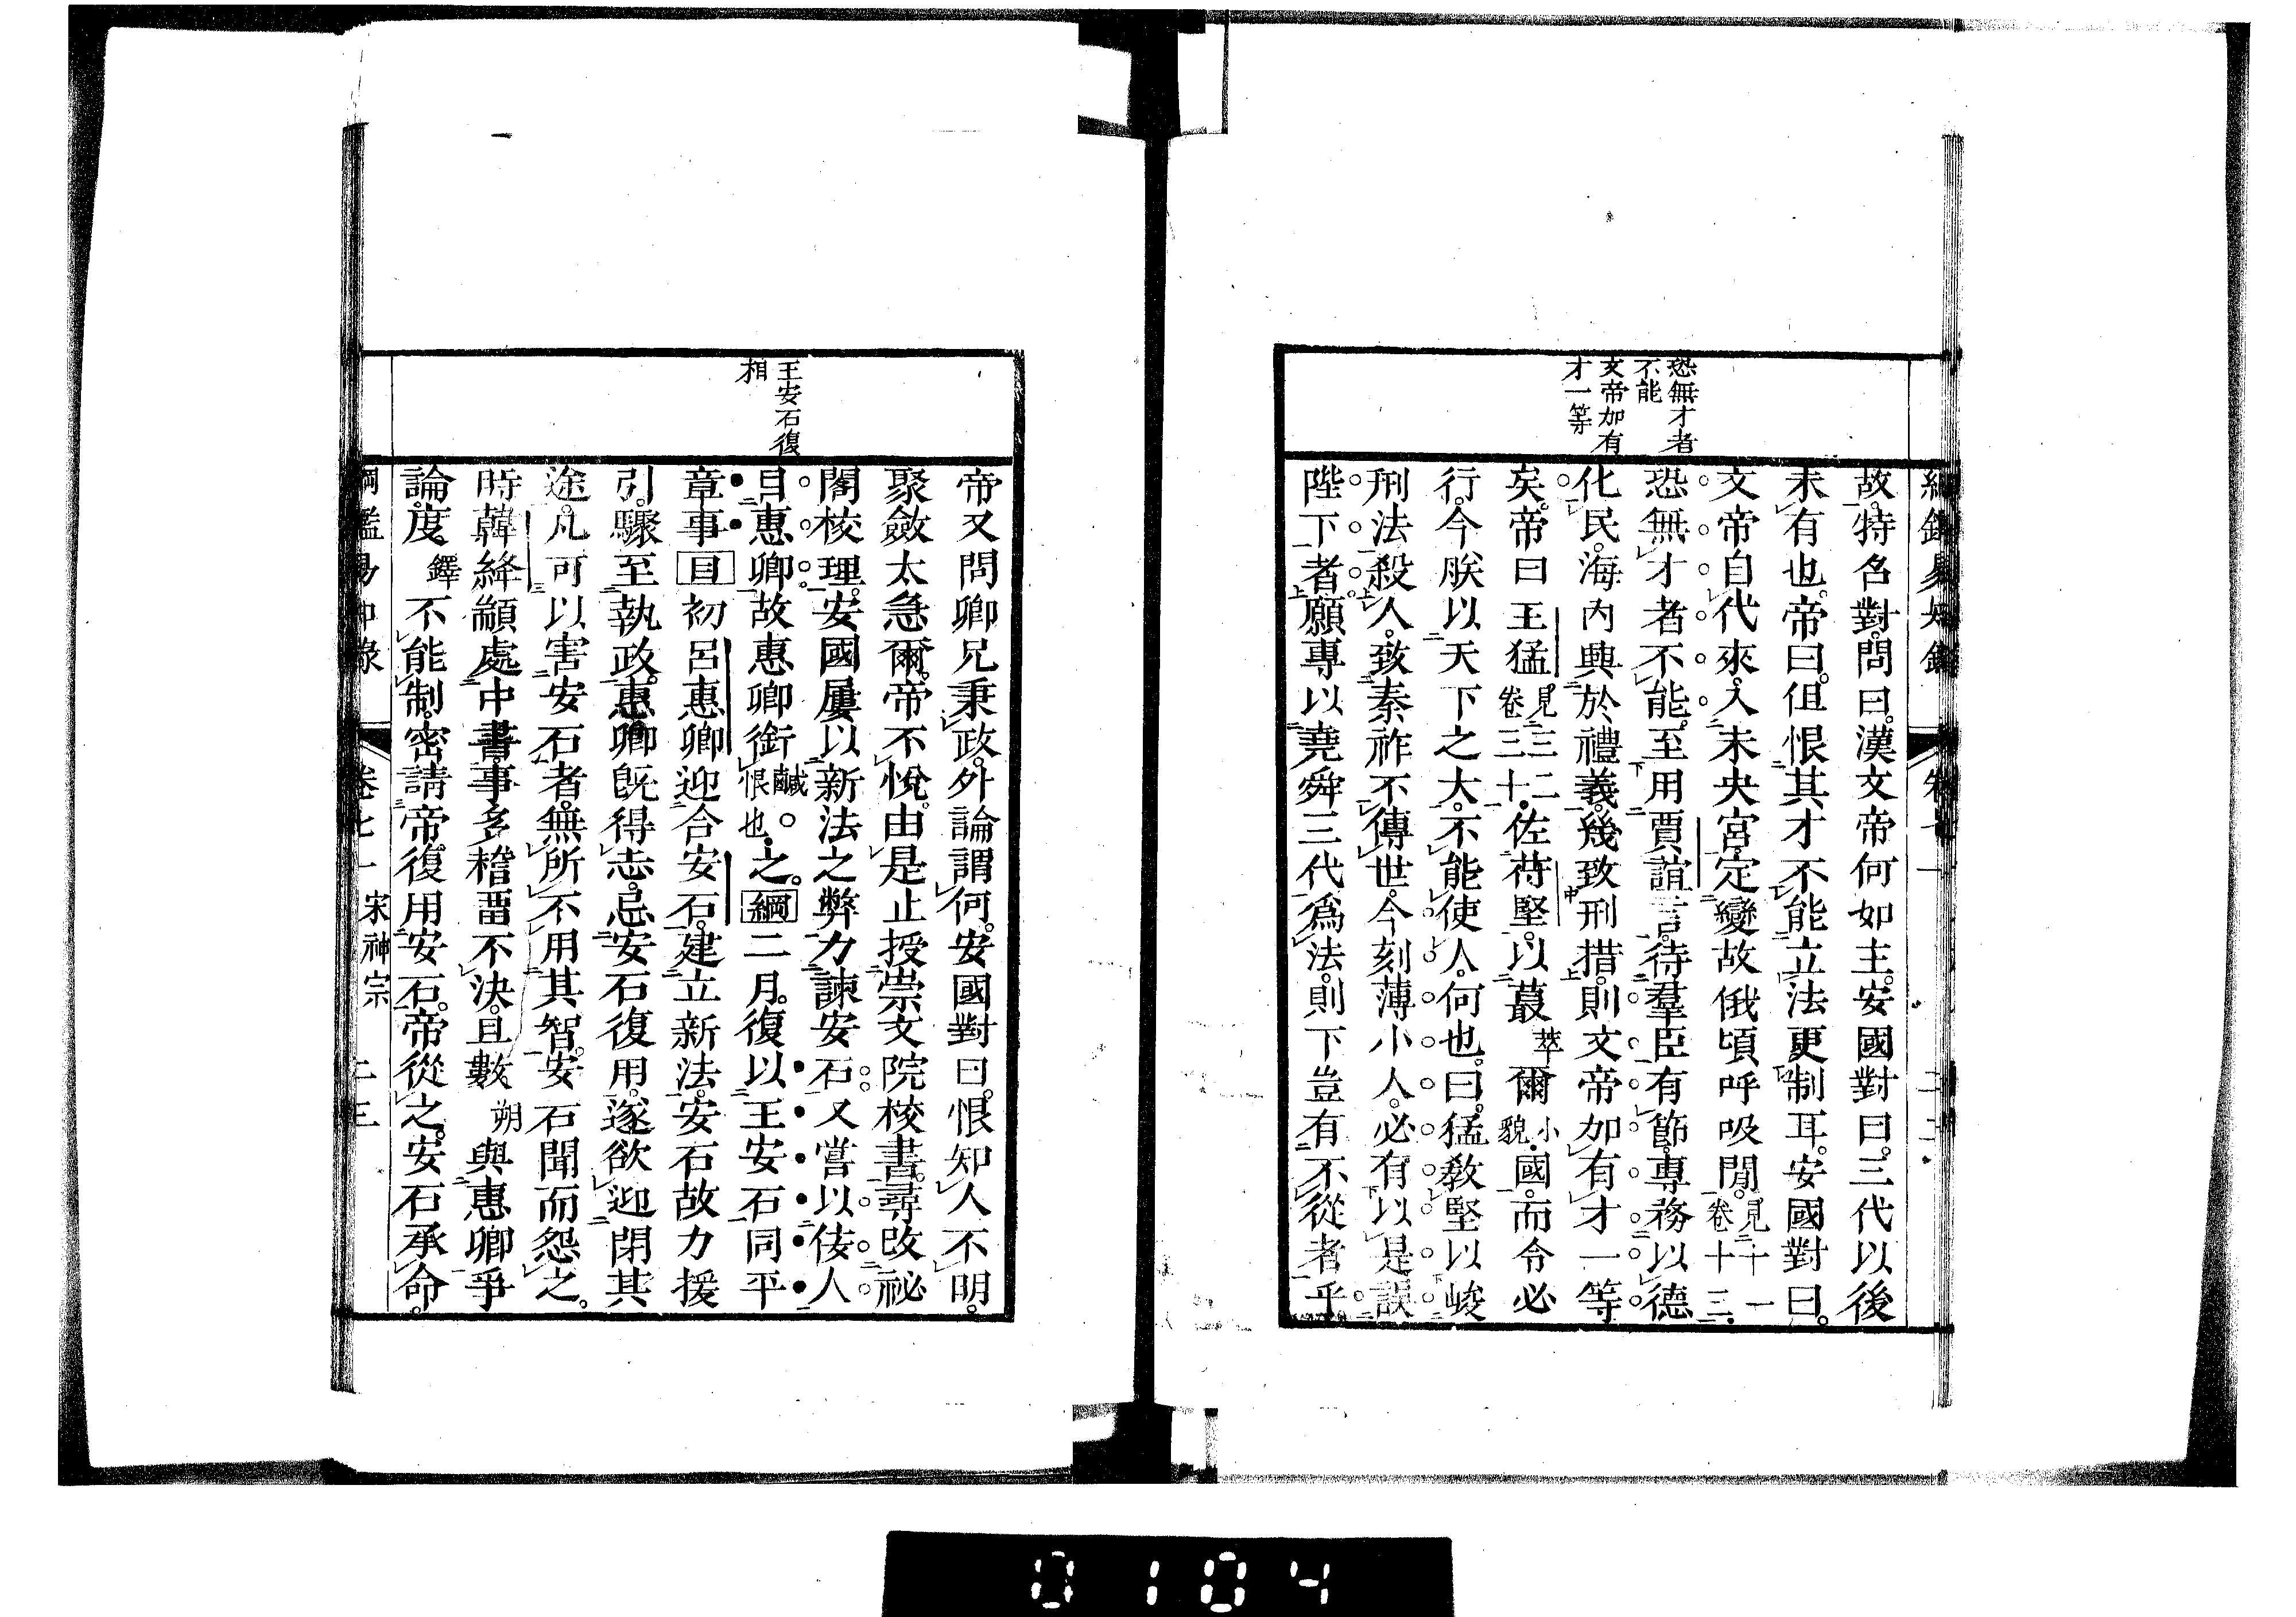 恐無才者
不能
文帝加有
才一等
故。特名對。問曰。漢文帝何如主。安國對曰。三代以後
未有也。帝曰。但恨其才不能立法更制耳。安國對曰。
文帝自代來。入未央宮。定變故俄頃呼吸閒。見二十一卷十三。
恐無才者不能。至用賈誼言。待羣臣有節。專務以德
化民。海內興於禮義。幾致刑措。則文帝加有才一等
矣。帝曰王猛。見三二卷三十。佐苻堅。以蕞蕝爾小貌。國。而令必
行。今朕以天下之大。不能使人。何也。曰。猛敎堅以峻
刑法殺人。致秦祚不傳世。今刻薄小人。必有以是誤
陛下者。願專以堯舜三代爲法。則下豈有不從者乎
王安石復
相
帝又問卿兄秉政。外論謂何。安國對曰。恨知人不明。
聚斂太急爾。帝不悅。由是止授崇文院校書。尋改祕
閣校理。安國屢以新法之弊力諫安石又嘗以佞人
目惠卿故惠卿銜鹹。恨也。之。綱二月。復以王安石同平
章事目初呂惠卿迎合安石。建立新法。安石故力援
引。驟至執政。惠卿旣得志。忌安石復用。遂欲迎閉其
途。凡可以害安石者。無所不用其智。安石聞而怨之。
時韓絳顓處中書。事多稽畱不決。且數朔與惠卿爭
論。度鐸不能制。密請帝。復用安石。帝從之。安石承命。
綱鑑易知錄 卷七一 宋神宗 二三